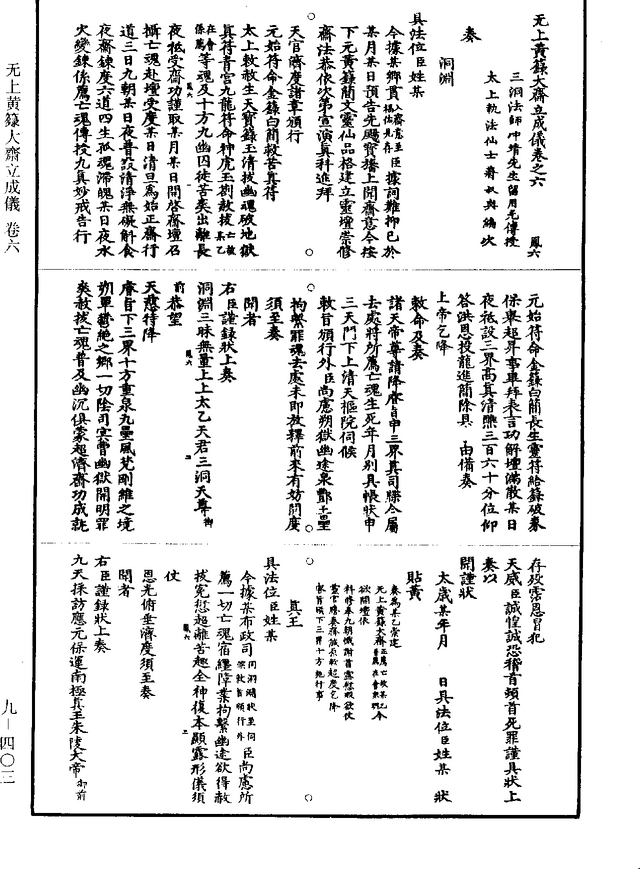 无上黃籙大齋立成儀 卷六
九－四〇三
无上黃籙大齋立成儀卷之六 鳳六
三洞法師冲靖先生留用光傳授
太上執法仙士蔣叔輿編次
奏
洞淵
具法位臣姓某
今據某鄉貫入齋意至臣據詞難抑已於
某月某日預告先颺寶旛上聞齋意今按
下元黃籙簡文靈仙品格建立靈壇崇修
齋法恭依次第宣演真科進拜
天官濟度諸章頒行
元始符命金籙白簡救苦真符
太上敕赦生天寶籙玉清拔幽魂破地獄
真符青宮九龍符命神虎玉劄赦拔
等魂及十方九幽囚徒苦爽出離長
夜祗受齋功謹取某月某日開啓齋壇召
攝亡魂赴壇受度某日清旦爲始正齋行
道三日九朝某日夜普設清淨無礙斛食
夜齋鍊度六道四生孤魂滯魄某日夜水
火變鍊係薦亡魂傳授九真妙戒告行
元始符命金籙白簡長生靈符給籙破券
保舉超昇事畢拜表言功解壇滿散某日
夜祗設三界高真清醮三百六十分位仰
答洪恩投龍進簡除具 由備奏
上帝乞降
敕命及奏
諸天帝尊請降
去處將所薦亡魂生死年月別具帳狀申
三天門下上清天樞院伺候
敕旨頒行外臣尚慮朔獄幽途泉酆
拘繫罪魂去處未即放釋前來有妨開度
須至奏
聞者
右臣謹錄狀上奏
洞淵三昧無量上上太乙天君三洞天尊 御
前恭望
天慈特降
睿旨下三界十方重泉九壘風梵剛維之境
朔單鬱絶之鄉一切陰司冥曹幽獄開明罪
爽赦拔亡魂普及幽沉俱蒙超濟齋功成就
存歿霑恩冒犯
天威臣誠惶誠恐稽首頓首死罪謹具狀上
奏以
聞謹狀
太歲某年月 日具法位臣姓某 狀
貼黃
奏爲某乙崇建
无上黃籙大齋
欲開壇依
科修奉九朝
真王
具法位臣姓某
今據某布政司
臣尚慮所
薦一切亡魂宿纏障業拘繫幽途欲得赦
拔寃愆超離苦趣全神復本顯露形儀須
仗
恩光俯垂濟度須至奏
聞者
右臣謹錄狀上奏
九天採訪應元保運南極真王朱陵大帝 御前